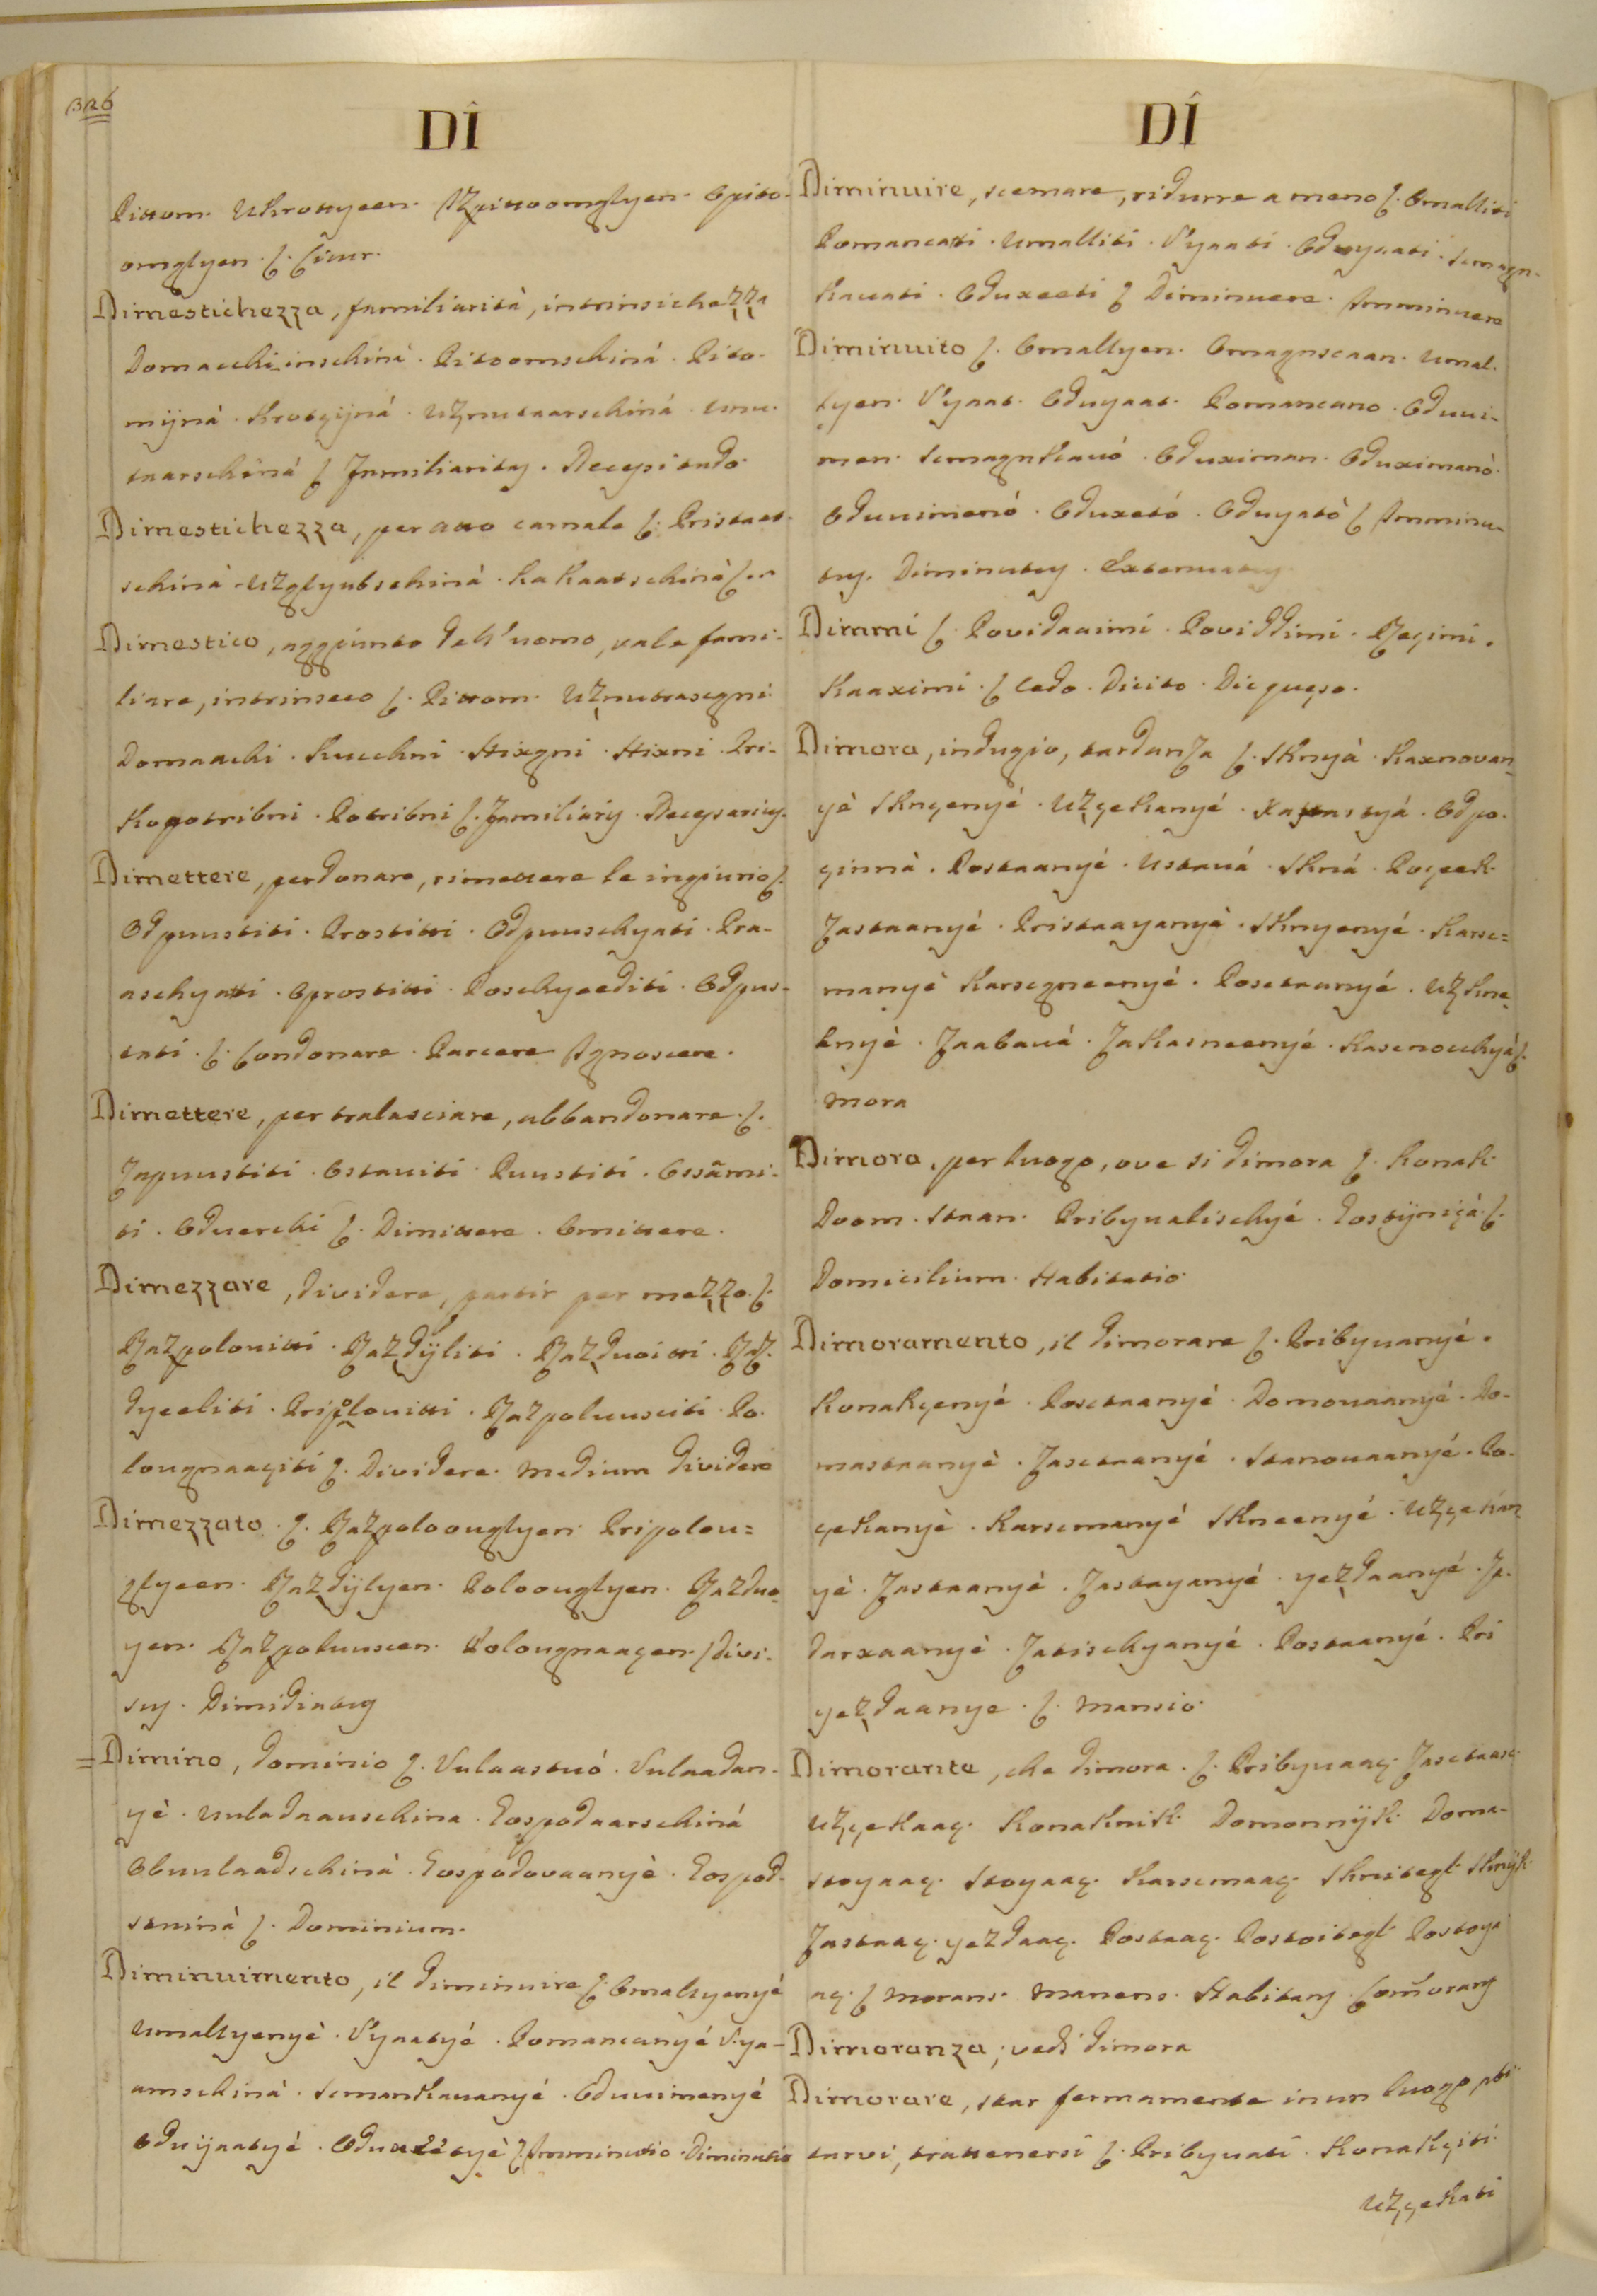 326
DÎ
Pittom. Ukrottyeen. Uzpittoomglyen. Opito-
omglyen. ſ. Cicur.
Dimestichezza, familiarità, intrinsichezza
Domacchinschinà. Pitoomschinà. Pito-
mijnà. Krotcijnà. Uznutaarschinà. Unu-
taarschinà ſ Familiaritas. Necessitudo.
Dimestichezza, per atto carnale ſ. Pristaat-
schinà. Uzglyubschinà. Kakaatschinà ſ.
Dimestico, aggiunto dell'uomo, vale fami-
liare, intrinseco ſ. Pittom. Uznutrascgni
Domaachi. Kucchni. Hixgni. Hixni. Pri-
kopotribni. Potribni ſ. Familiaris. Necessarius.
Dimettere, perdonare, rimettere le ingiurie ſ.
Odpuustiti. Prostitti. Odpuuschyati. Pra-
aschyatti. Oprostitti. Poschyeediti. Odpus-
tati. ſ. Condonare. Parcere. Agnoscere.
Dimettere, per tralasciare, abbandonare. ſ.
Zapuustiti. Ostauiti. Puustiti. Ossami-
ti. Oduerchi ſ. Dimittere. Omittere.
Dimezzare, dividere, partir per mezzo. ſ.
Razpolouitti. Razdijliti. Razduoitti. Raz-
dyeeliti. Pripolouitti. Razpoluusciti. Po-
lougnaaçiti ſ. Dividere. Medium dividere
Dimezzato. ſ. Razpoloouglyen. Pripolou=
glyeen. Razdijlyen. Poloouglyen. Razduo-
yen. Razpoluuscen. Polougnaaçen. ſ Divi-
sus. Dimidiatus
= Dimino, dominio ſ. Vulaastuó. Vulaadan-
yè. Uuladaauschina. Gospodaarschinà
Obuulaadschinà. Gospodovaanyè. Gospod-
stuinà ſ. Dominium.
Diminuimento, il diminuire ſ. Omallyenyè
Umallyenyè. Vyaatyé. Pomancanyé Vya-
amschinà. Scmankauanyé. Oduuimenyé
Oduijaatyè. Oduxetyè ſ. Imminutio. Diminutio
DÎ
Diminuire, scemare, ridurre a meno ſ. Omalliti
Pomancati. Umalliti. Vyaati. Oduyaati. Scmagn-
kauati. Oduxeeti ſ Diminuere. Imminuere
Diminuito ſ. Omallyen. Omagnscaan. Umal-
lyen. Vyaat. Oduyaat. Pomancano. Oduui-
men. Scmagnkauó. Oduximan. Oduximanò.
Oduuimenó. Oduxetó. Oduyatò ſ Imminu-
tus. Diminutus. Extenuatus.
Dimmi ſ. Povidaaimi. Poviddimi. Reçimi.
Kaaximi. ſ Cedo. Dicito. Dic queso.
Dimora, indugio, tardanza ſ. Sknyà. Kaxnovan-
yè Sknçenyé. Uzçekanyé. Xastyá. Odpo-
çinnà. Postaanyé. Ustauá. Skná. Poçeek.
Zastaanyé. Pristaayanyè. Sknyenyé. Karsc=
manyè Karscgneenyé. Posctaunyé. Uzkne-
knyè. Zaabauá. Zakasneenyé. Kascnouchyà ſ.
Mora
Dimora, per luogo, ove si dimora ſ. Konak.
Doom. Staan. Pribyualischyé. Gostijniçà. ſ.
Domicilium. Habitatio.
Dimoramento, il dimorare ſ. Pribyuanyé.
Konakçenyé. Posctaanyè. Domouaanyé. Do-
mastaanyè. Zasctaanyé. Stanouaanyé. Po-
çekanyè. Karscmanyé Skneenyé. Uzçekan-
yè. Zastaanyè. Zastayanyé. yezdaanyé. Za-
darxaanyè. Zatischyanyé. Postaanyé. Pri
yezdaanye. ſ. Mansio.
Dimorante, che dimora. ſ. Pribyuaaç. Zasctaaç.
Uzçekaaç. Konaknik. Domonnijk. Doma-
stoyaaç. Stoyaaç. Karscmaaç. Sknitegl. Sknijk.
Zastaaç. yezdaaç. Postaaç. Postoitegl. Postoya
aç. ſ Morans. Manens. Habitans. Com̃orans
Dimoranza; vedi dimora
Dimorare, star fermamente in un luogo,
tarvi, trattenersi ſ. Pribyuati. Konakçiti.
Uzçekati